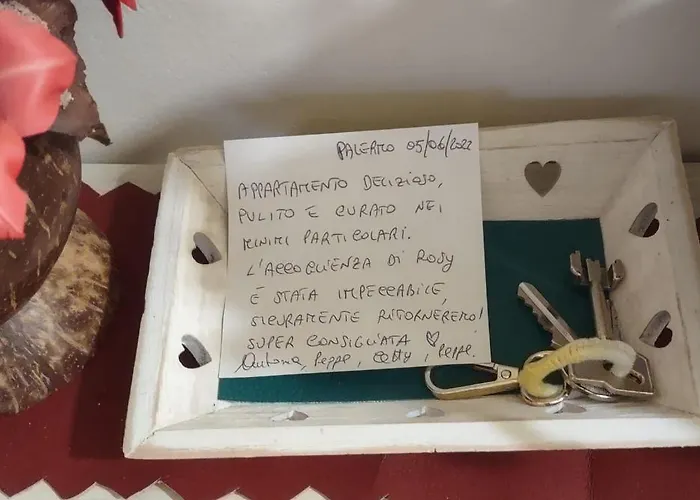 PALERMO 05/06/2022
APPARTAMENTO DELIZIOSO,
PULITO E CURATO NEI
MINIMI PARTICOLARI.
L'ACCOGLIENZA DI ROSY
È STATA IMPECCABILE,
SICURAMENTE RITORNEREMO!
SUPER CONSIGLIATA ♡
Peppe,